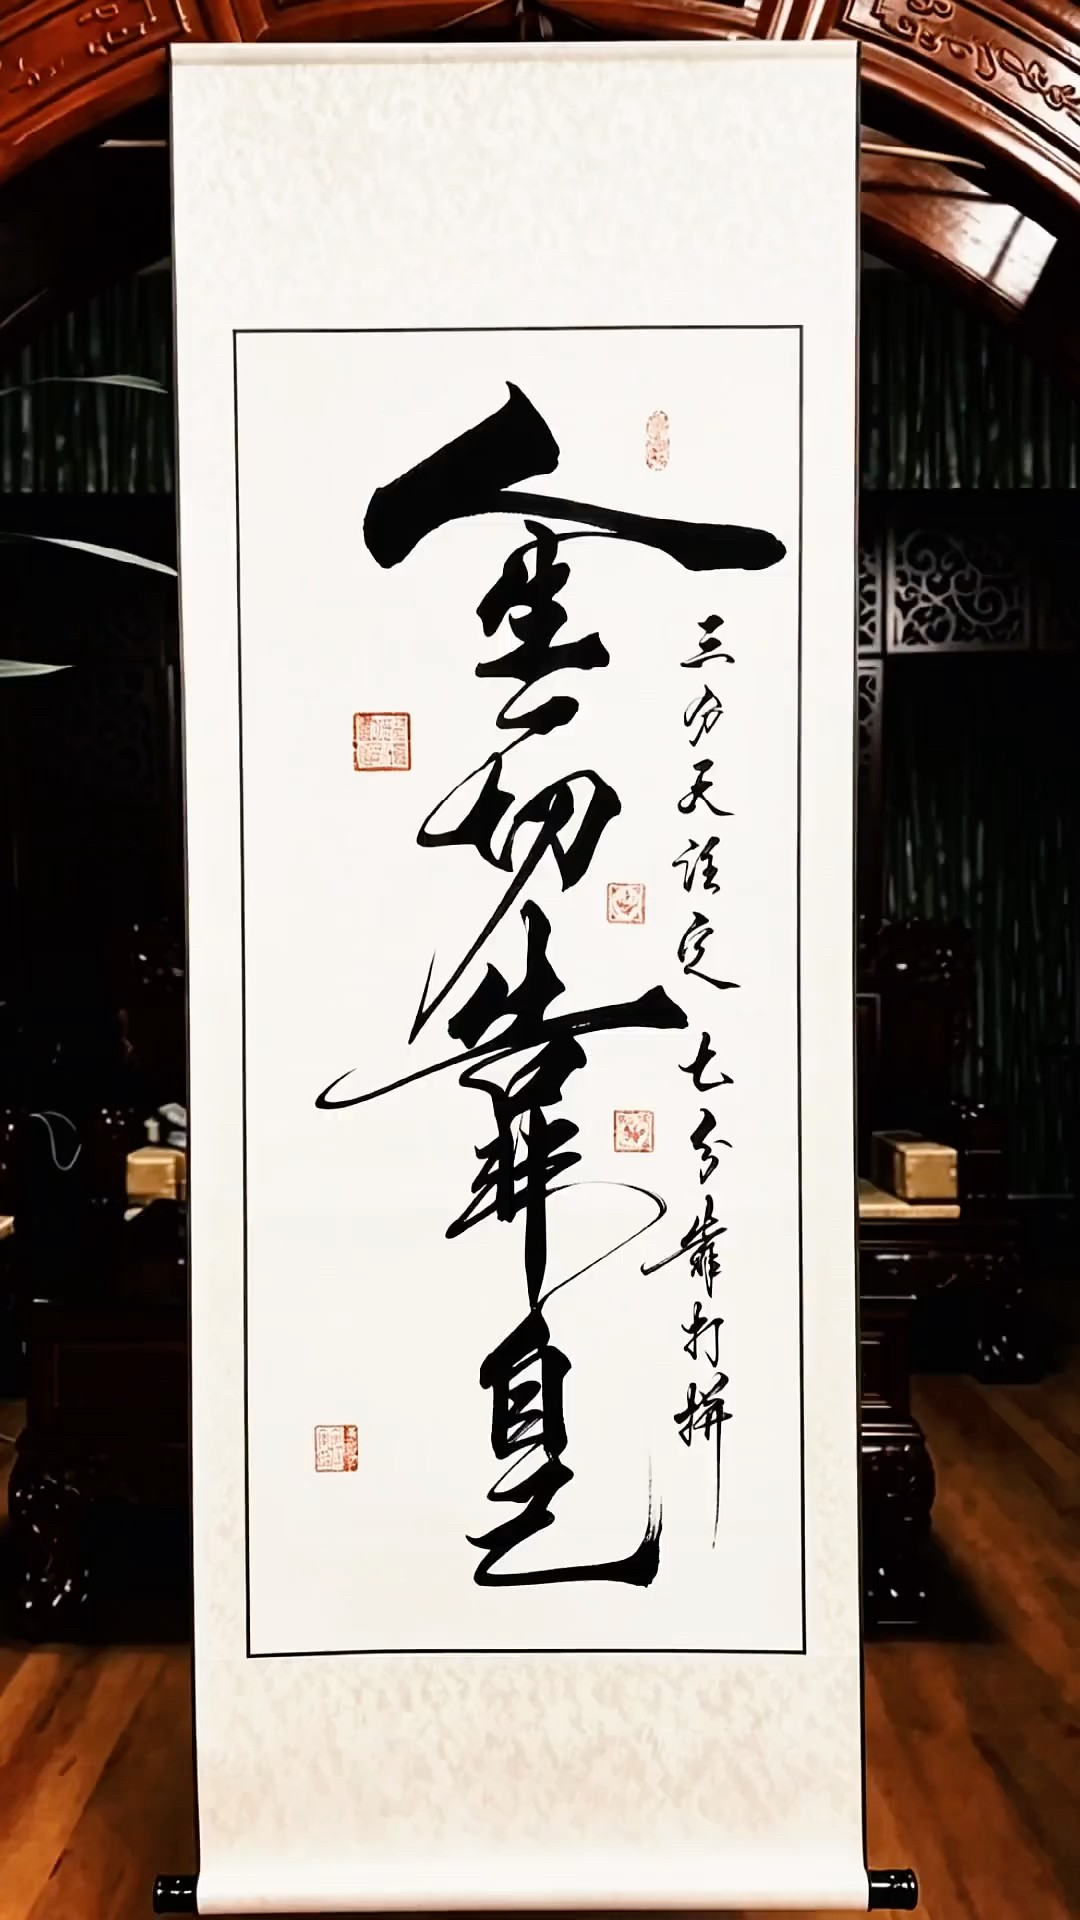 人生一切靠自己
三分天註定七分靠打拼